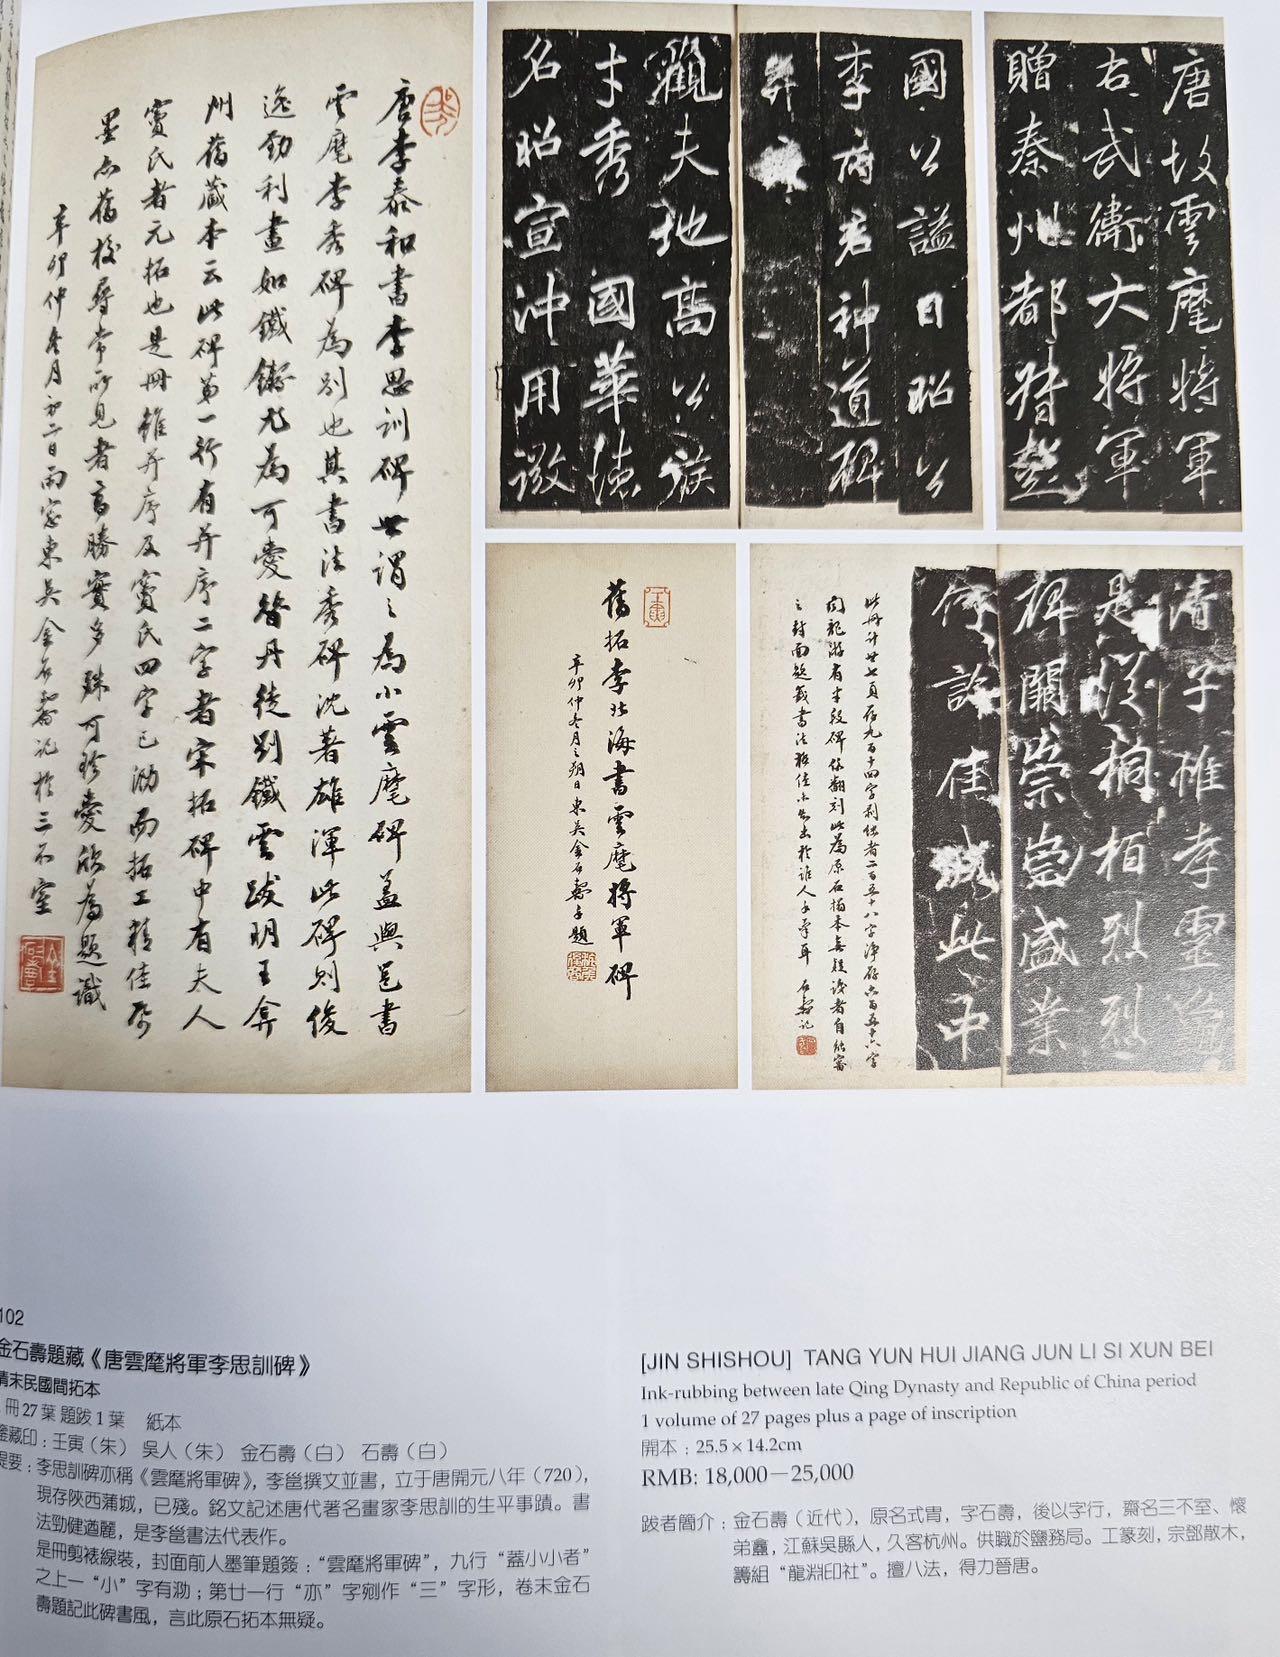 唐李泰和書李思訓碑世謂之為小雲麾碑蓋與邕書
雲麾李秀碑為別也其書法秀碑沈著雄渾此碑則俊
逸勁利畫如鐵鑄尤為可愛昔丹徒劉鐵雲跋明王弇
州舊藏本云此碑第一行有并序二字者宋拓碑中有夫人
竇氏者元拓也是冊雖并序及竇氏四字已泐而拓工精佳
墨色舊校尋常所見者高勝實多殊可珍愛欣為題識
辛卯仲冬月初二日雨窗東吳金石壽記於三不室
唐故雲麾將軍
右武衛大將軍
贈秦州都督彭
國公謚曰昭公
李府君神道碑
并
觀夫地高公族
才秀國華德
名昭宣沖用微
舊拓李北海書雲麾將軍碑
辛卯仲冬月之朔日東吳金石壽手題
清子惟孝靈
是從桐栢烈烈
碑闕崇崇盛業
何許佳城此中
此冊計廿七頁存九百十四字剥佚者二百五十八字淨存六百五十六字
聞龍游有半段碑係翻刻此為原石搨本無疑識者自能審
之封面題籤書法極佳不知出於誰人手筆耳 石壽記
102
金石壽題藏《唐雲麾將軍李思訓碑》
清末民國間拓本
冊27葉 題跋1葉 紙本
鑒藏印：壬寅（朱） 吳人（朱） 金石壽（白） 石壽（白）
提要：李思訓碑亦稱《雲麾將軍碑》，李邕撰文並書，立于唐開元八年（720），
現存陝西蒲城，已殘。銘文記述唐代著名畫家李思訓的生平事蹟。書
法勁健遒麗，是李邕書法代表作。
是冊剪裱線裝，封面前人墨筆題簽：“雲麾將軍碑”，九行“蓋小小者”
之上一“小”字有泐；第廿一行“亦”字剜作“三”字形，卷末金石
壽題記此碑書風，言此原石拓本無疑。
[JIN SHISHOU] TANG YUN HUI JIANG JUN LI SI XUN BEI
Ink-rubbing between late Qing Dynasty and Republic of China period
1 volume of 27 pages plus a page of inscription
開本：25.5×14.2cm
RMB: 18,000－25,000
跋者簡介：金石壽（近代），原名式胄，字石壽，後以字行，齋名三不室、懷
弟盦，江蘇吳縣人，久客杭州。供職於鹽務局。工篆刻，宗鄧散木，
籌組“龍淵印社”。擅八法，得力晉唐。